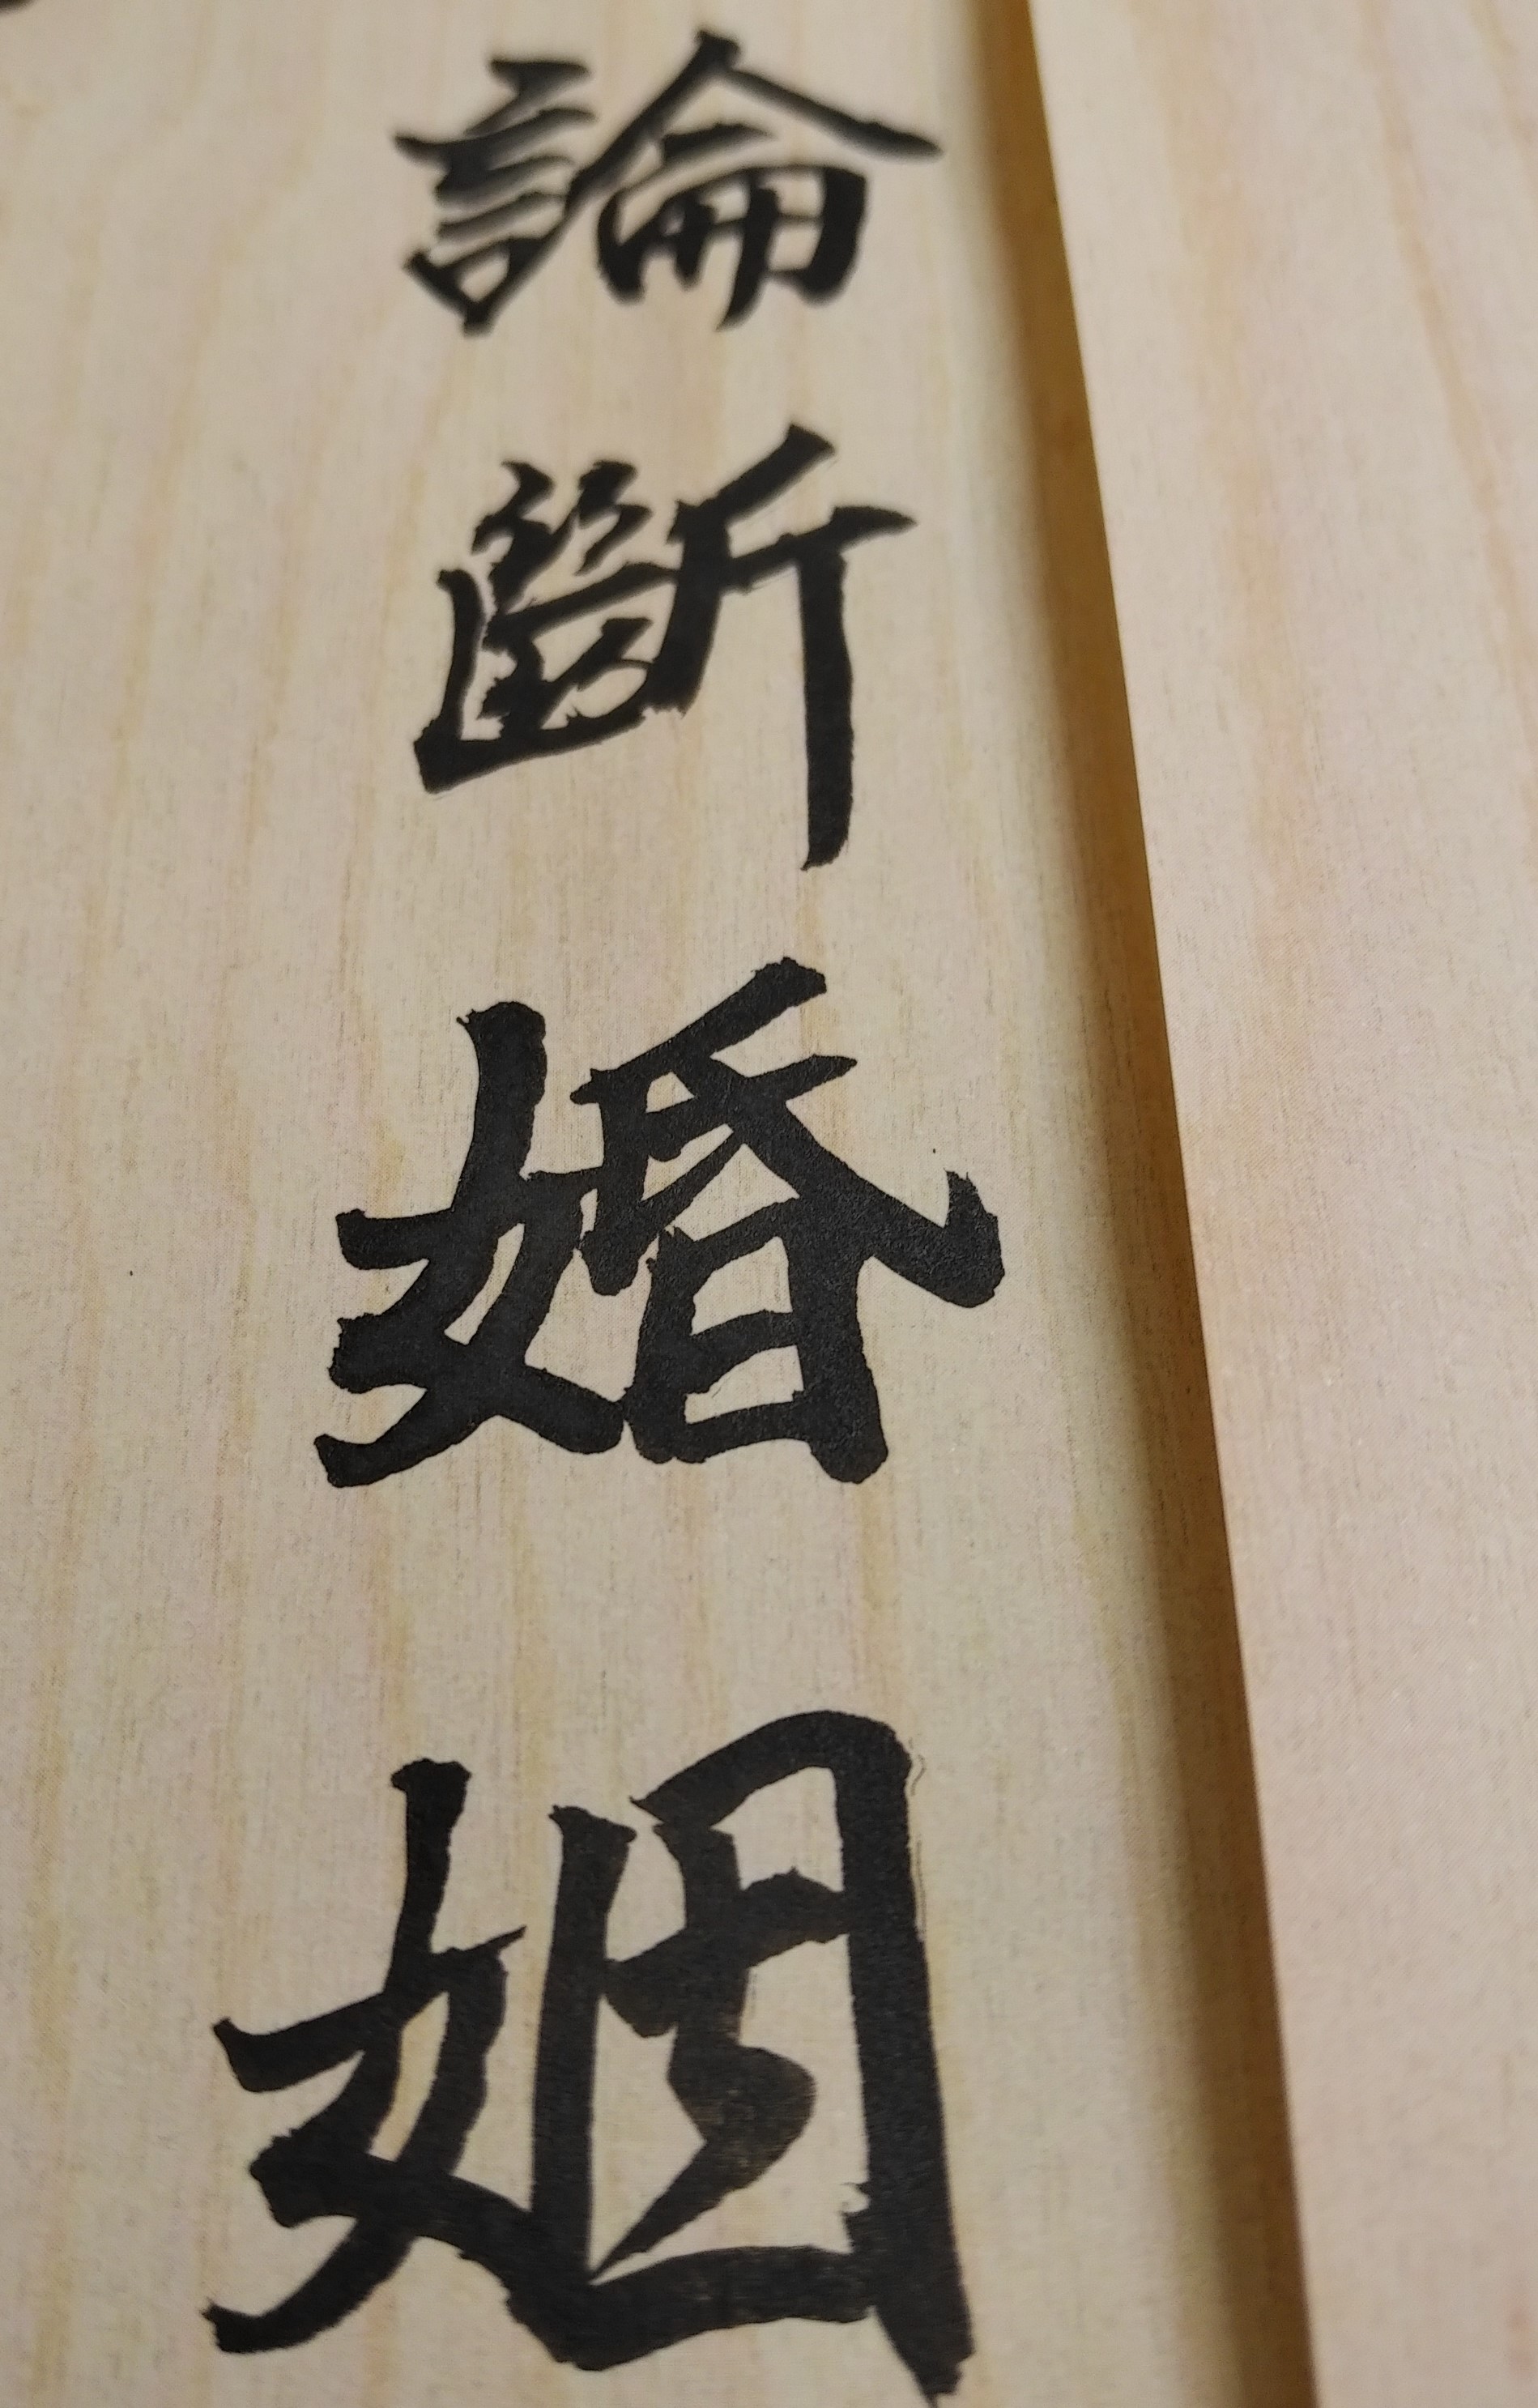 論斷婚姻